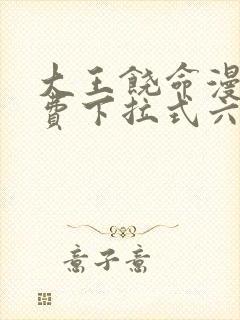 大王饶命漫
费下拉式六
意子意